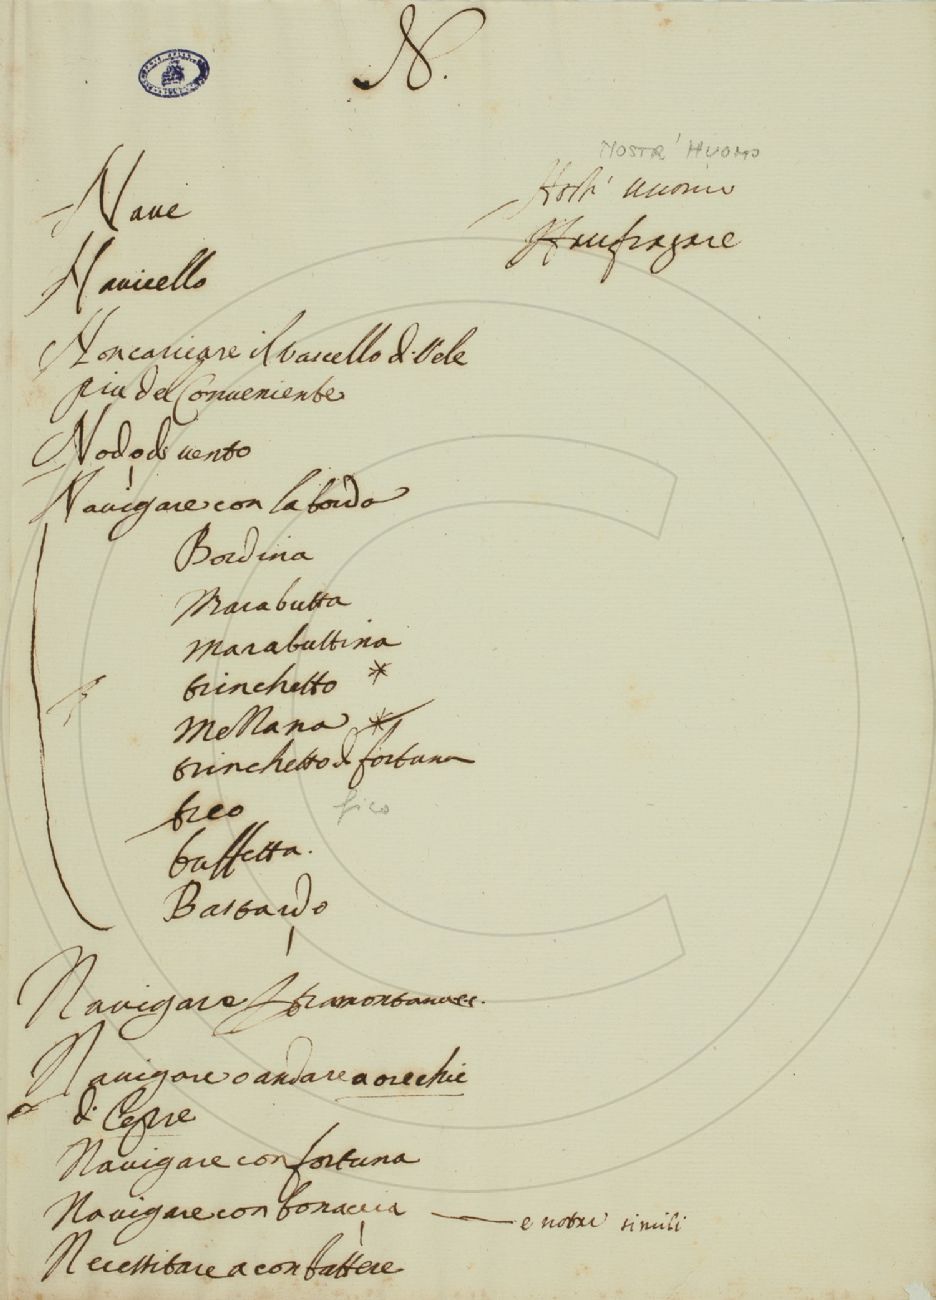 N.
Naue
Nauicello
Non caricare il vascello di Vele
piu del Conueniente
Nodo di uento
Nauigare con la borda
Bordina
Marabutta
Marabuttina
trinchetto *
Mezzana *
trinchetto di fortuna
treo
fico
Bastardo
Nauigare
Nauigare o andare a orechie
di Lepre
Nauigare con fortuna
Nauigare con bonaccia — e notar simili
Necessitare a combattere
NOSTR' HUOMO
Nostr' uuomo
Naufragare